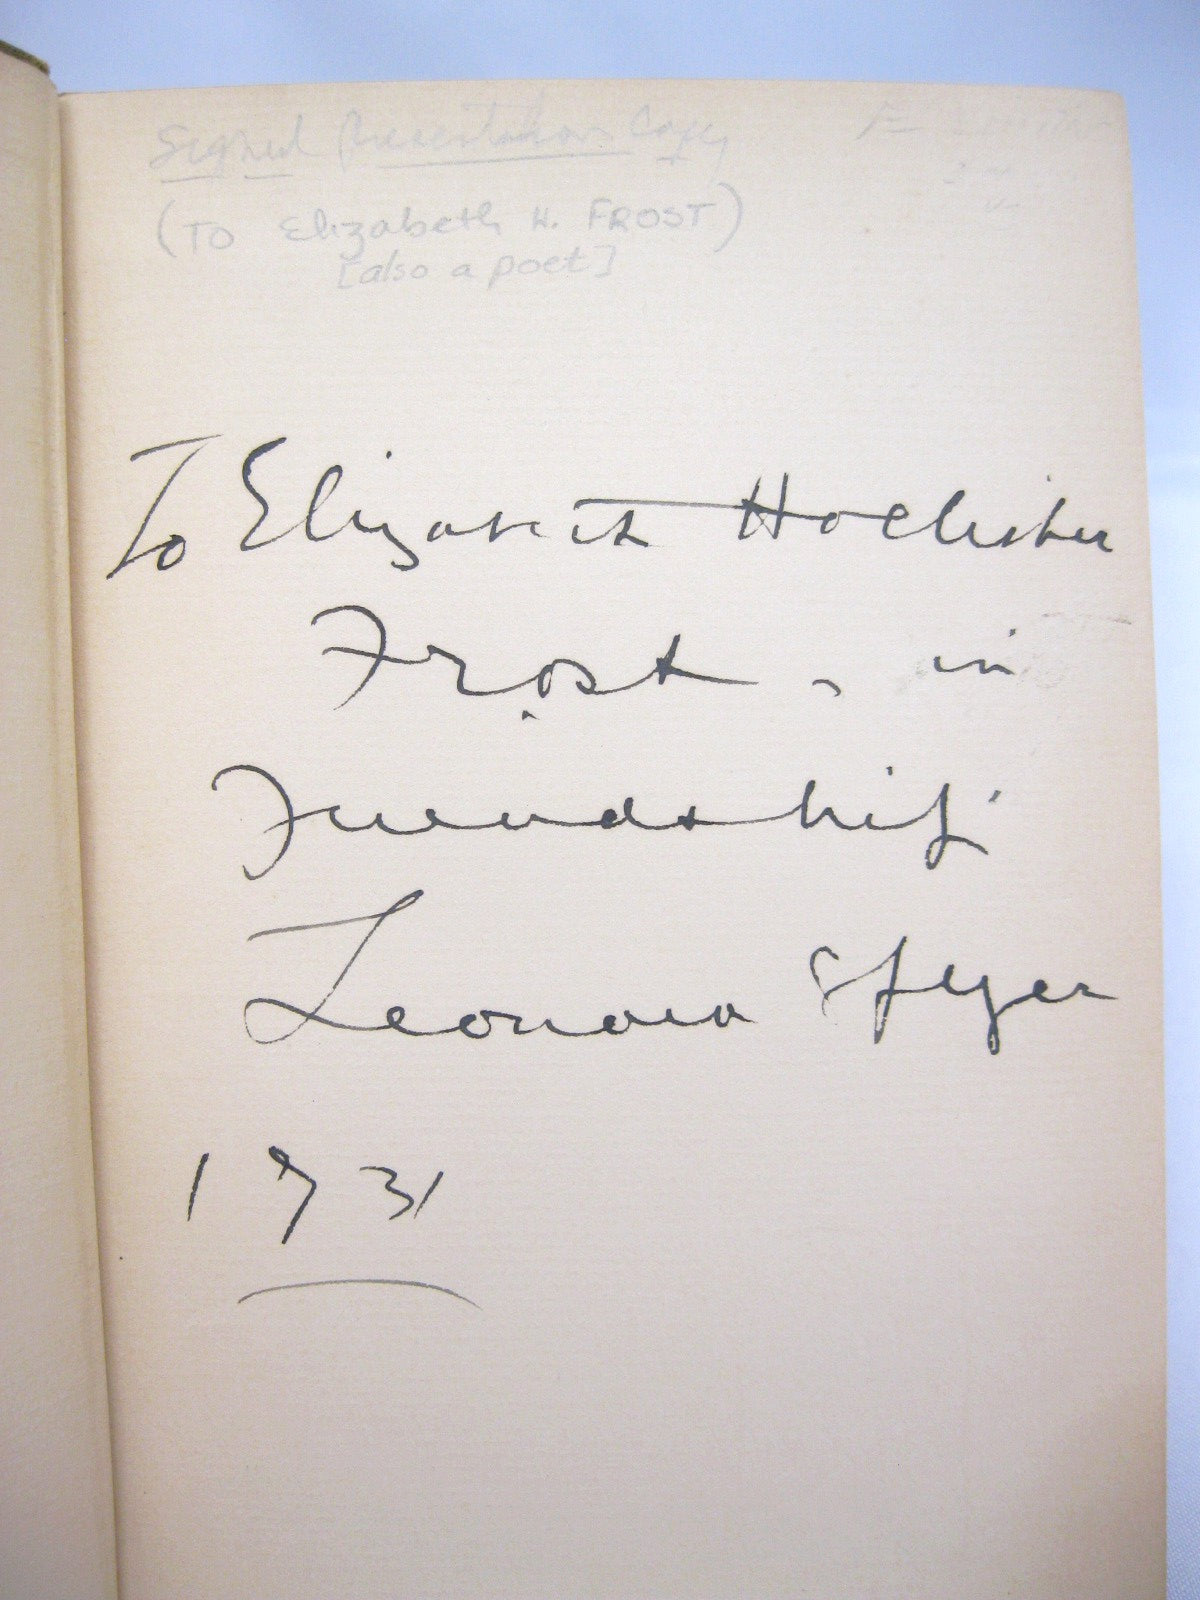 Signed Presentation Copy
(TO Elizabeth H. FROST)
[also a poet]
To Elizabeth Hollister
Frost, in
Friendship
Leonora Speyer
1931